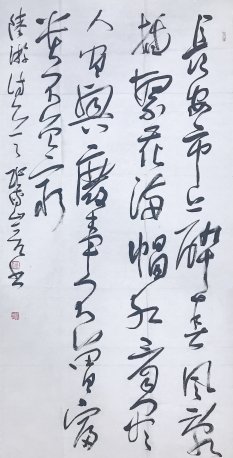 長安市上醉春風亂
插繁花滿帽紅看盡
人間興廢事不曾富
貴不曾窮
陸游詩